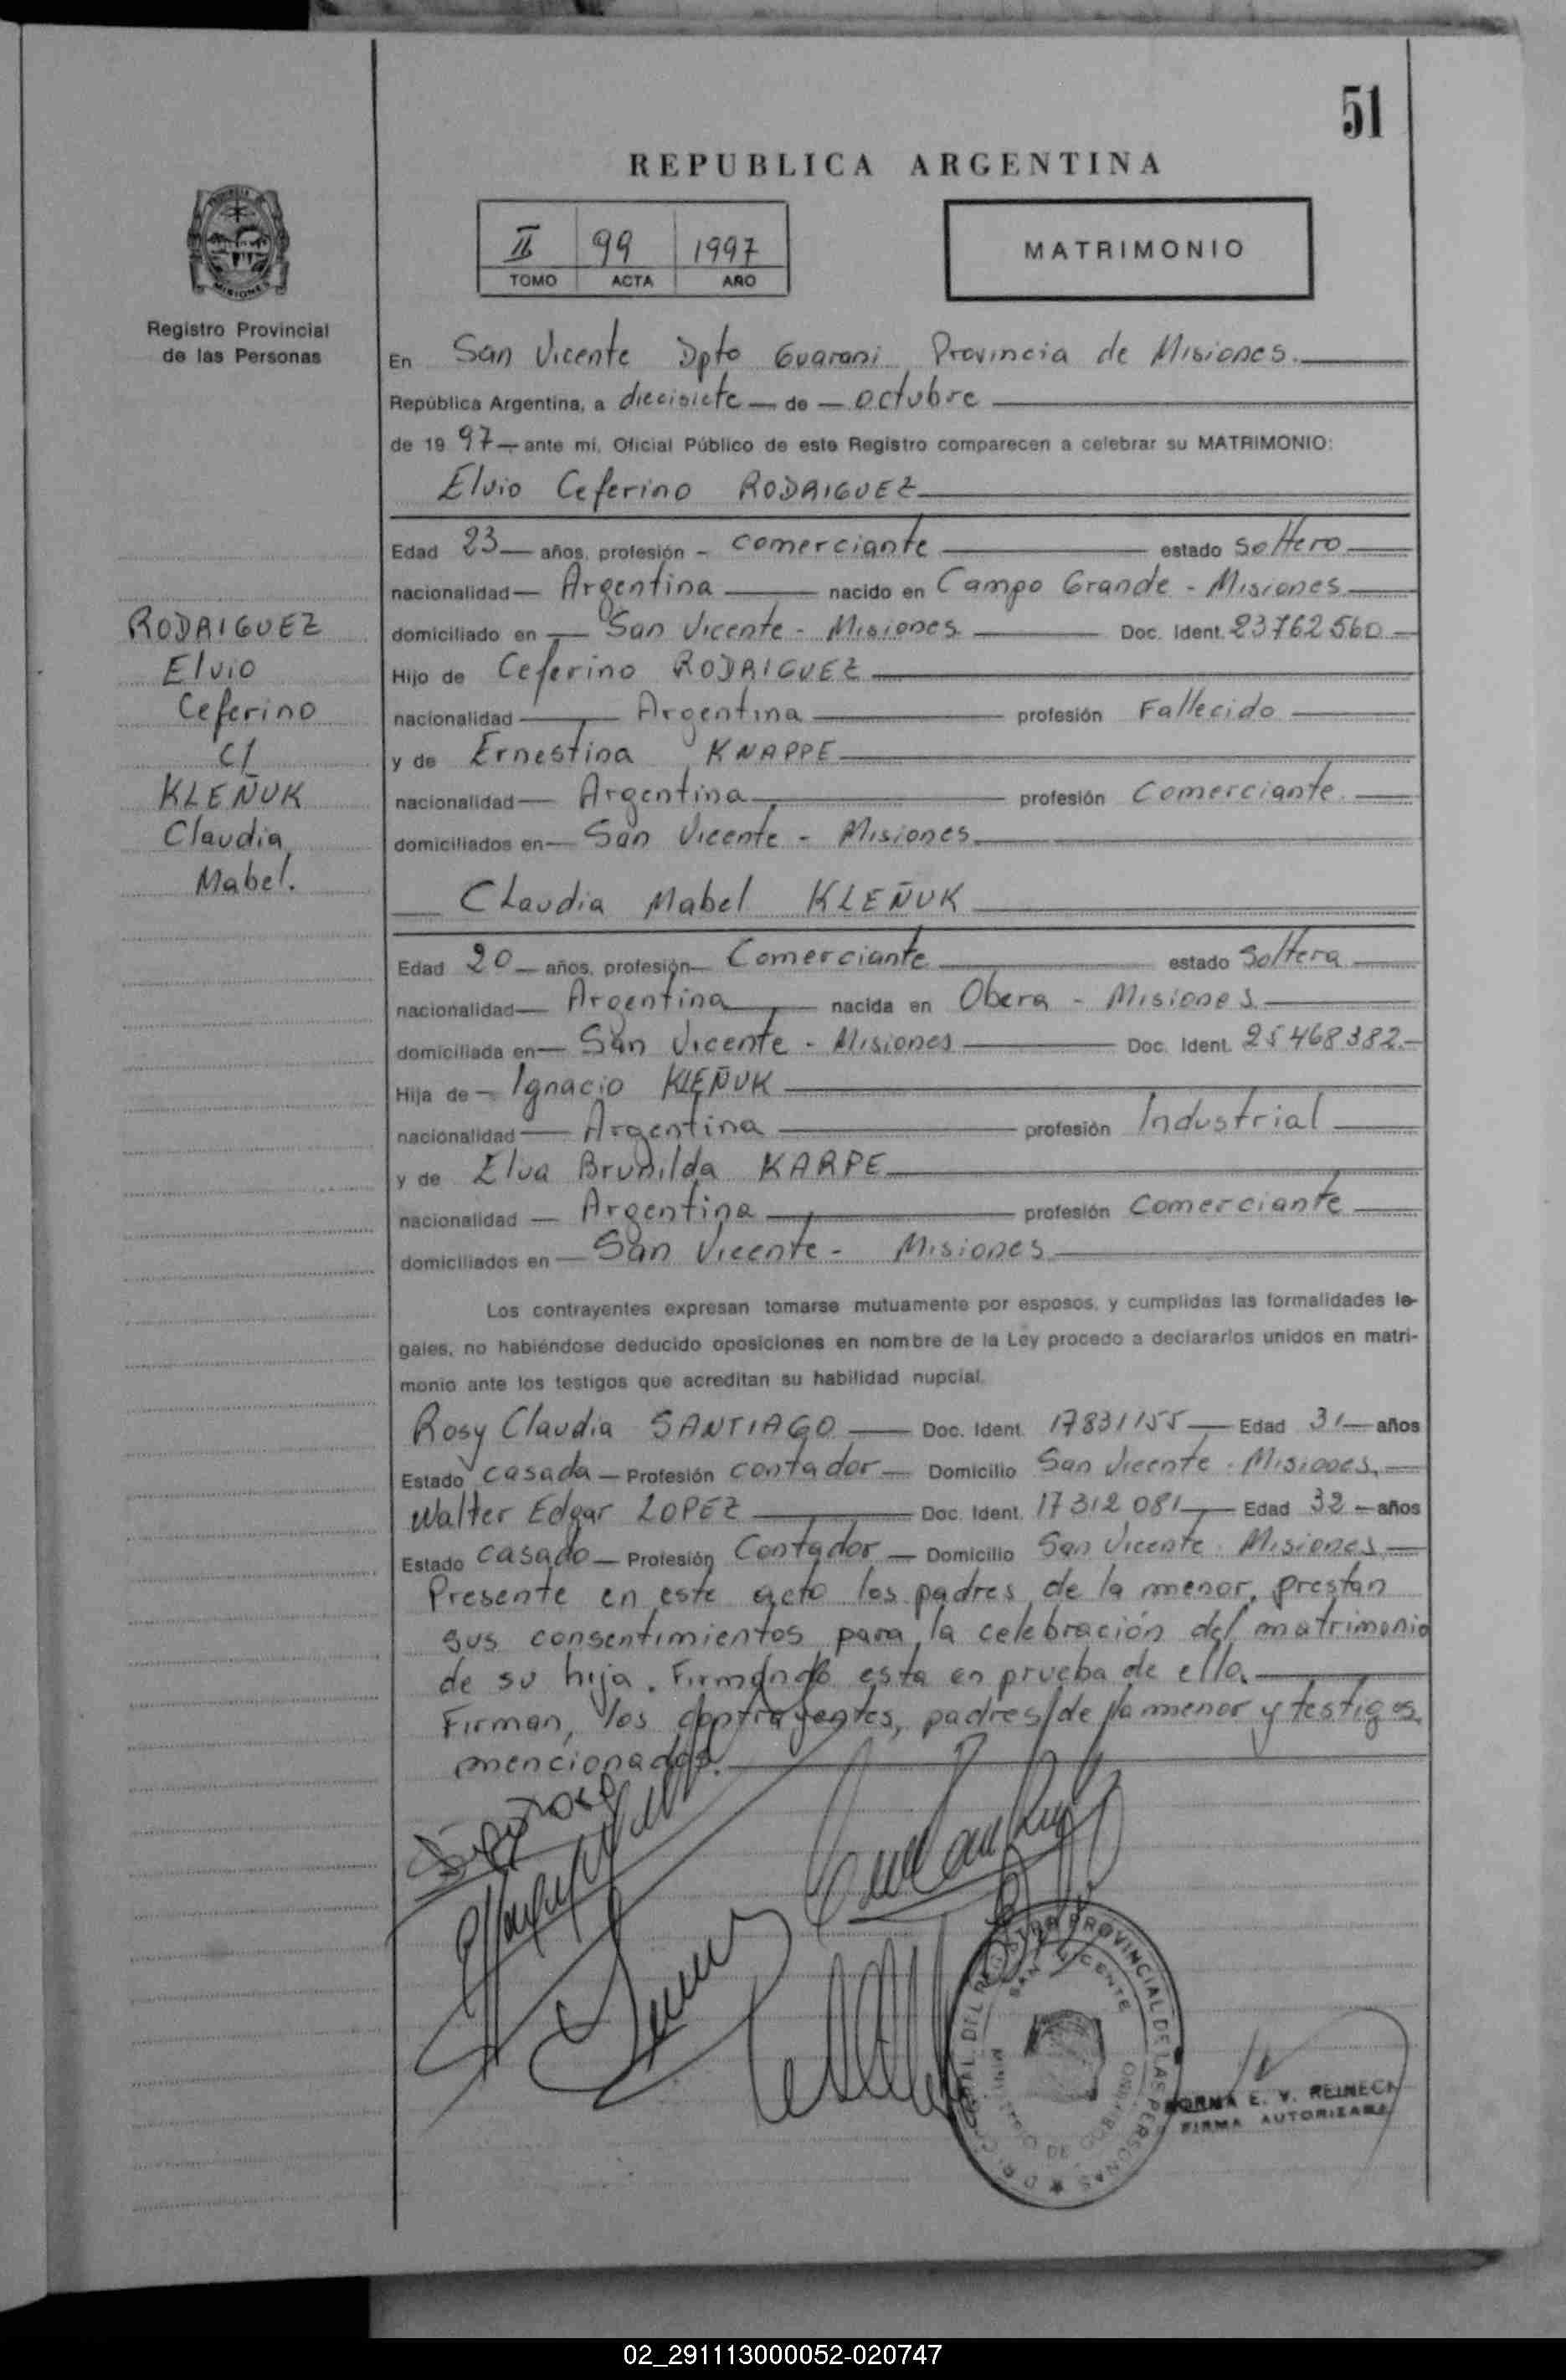 51
REPUBLICA ARGENTINA
II 99 1997
TOMO ACTA AÑO
MATRIMONIO
Registro Provincial
de las Personas
En San Vicente Dpto Guarani, Provincia de Misiones.
República Argentina, a diecisiete de octubre
de 19 97 ante mí, Oficial Público de este Registro comparecen a celebrar su MATRIMONIO:
Elvio Ceferino RODRIGUEZ
Edad 23 años, profesión - comerciante estado soltero
nacionalidad Argentina nacido en Campo Grande - Misiones
domiciliado en San Vicente - Misiones Doc. Ident. 23762560
Hijo de Ceferino RODRIGUEZ
nacionalidad Argentina profesión Fallecido
y de Ernestina KNAPPE
nacionalidad Argentina profesión Comerciante.
domiciliados en San Vicente - Misiones
RODRIGUEZ
Elvio
Ceferino
C/
KLEÑUK
Claudia
Mabel.
Claudia Mabel KLEÑUK
Edad 20 años, profesión Comerciante estado Soltera
nacionalidad Argentina nacida en Obera - Misiones
domiciliada en San Vicente - Misiones Doc. Ident. 25468382.
Hija de Ignacio KLEÑUK
nacionalidad Argentina profesión Industrial
y de Elva Brunilda KARPE
nacionalidad Argentina profesión Comerciante
domiciliados en San Vicente - Misiones
Los contrayentes expresan tomarse mutuamente por esposos, y cumplidas las formalidades le-
gales, no habiéndose deducido oposiciones en nombre de la Ley procedo a declararlos unidos en matri-
monio ante los testigos que acreditan su habilidad nupcial.
Rosy Claudia SANTIAGO Doc. Ident. 17831155 Edad 31 años
Estado casada Profesión contador Domicilio San Vicente - Misiones.
Walter Edgar LOPEZ Doc. Ident. 17312081 Edad 32 años
Estado casado Profesión Contador Domicilio San Vicente - Misiones
Presente en este acto los padres de la menor, prestan
sus consentimientos para la celebración del matrimonio
de su hija. Firmando esta en prueba de ello.
Firman, los contrayentes, padres de la menor y testigos
mencionados.
DEL REGISTRO PROVINCIAL DE LAS PERSONAS
SAN VICENTE
MINISTERIO DE GOBIERNO
NORMA E. V. REINECK
FIRMA AUTORIZADA
02_291113000052-020747